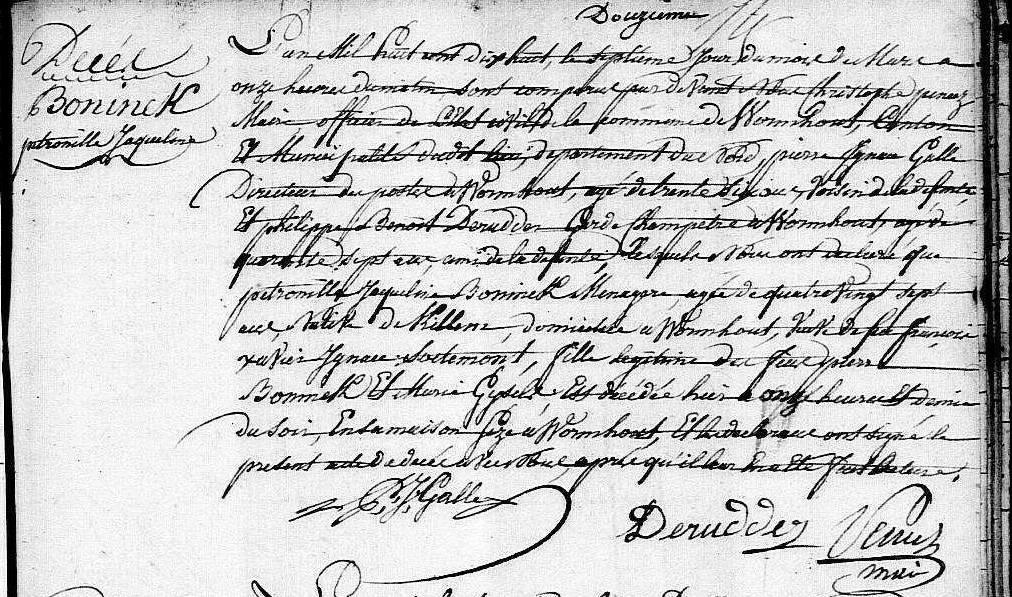 Douzieme
Décés
Boninck
petronille Jaqueline
L'an Mil huit cent dixhuit, le septieme Jour du mois de Mars a
onze heures du matin sont comparus par devant Nous Christophe
Maire officier de L'Etat civil de la commune de Wormhout, Canton
Et Municipalité dudit lieu, departement du Nord, pierre Ignace Galle
Directeur des postes a Wormhout, agé de trente six ans, Voisin de la defunte
Et philippe Benoit Derudder Garde Champetre a Wormhout, agé de
quarante sept ans, ami de la defunte, Lesquels Nous ont declaré que
petronille Jaqueline Boninck Menagere, agée de quatre Vingt sept
ans, Native de Killem, domiciliée a Wormhout, Veuve de feu françois
xavier Ignace Soetemont, fille legitime des feux pierre
Boninck Et Marie Est décédée hier a onze heures Et demie
du Soir, En sa maison Size a Wormhout, Et les declarans ont signé le
present acte de décés avec Nous après qu'il leur En a Eté fait lecture.
P. J. Galle
Derudder
maire